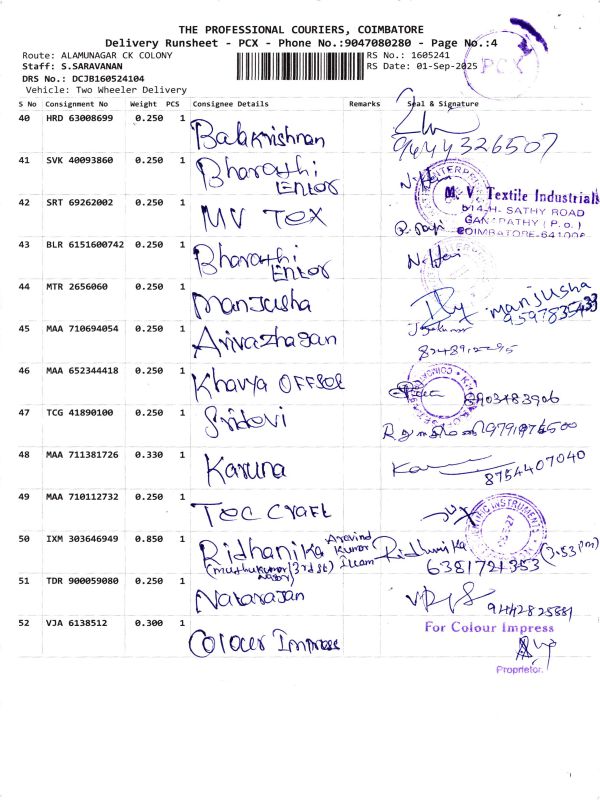 THE PROFESSIONAL COURIERS, COIMBATORE
Delivery Runsheet - PCX - Phone No.:9047080280 - Page No.:4
Route: ALAMUNAGAR CK COLONY
RS No.: 1605241
Staff: S.SARAVANAN
RS Date: 01-Sep-2025
PCX
DRS No.: DCJB160524104
Vehicle: Two Wheeler Delivery
S No Consignment No Weight PCS Consignee Details Remarks Seal & Signature
40 HRD 63008699 0.250 1 Balakrishnan
9644326507
41 SVK 40093860 0.250 1 Bharathi Enter
M. V. Textile Industrials
514-H- SATHY ROAD
GANAPATHY (P.o.)
COIMBATORE-641006
42 SRT 69262002 0.250 1 MV TEX
43 BLR 6151600742 0.250 1 Bharathi Enter
44 MTR 2656060 0.250 1 Manjusha
manjusha
9597835433
45 MAA 710694054 0.250 1 Arivazhagan
46 MAA 652344418 0.250 1 Khavya OFFSET
8903483906
47 TCG 41890100 0.250 1 Sridevi
48 MAA 711381726 0.330 1 Karuna
8754407040
49 MAA 710112732 0.250 1 Tec craft
50 IXM 303646949 0.850 1 Ridhanika
Aravind Kumar Illam
(muthukumar 3rd st) Nagar
Ridhunika
6381721353
(3.53 pm)
51 TDR 900059080 0.250 1 Natarajan
9442825881
52 VJA 6138512 0.300 1 Colour Impress
For Colour Impress
Proprietor.